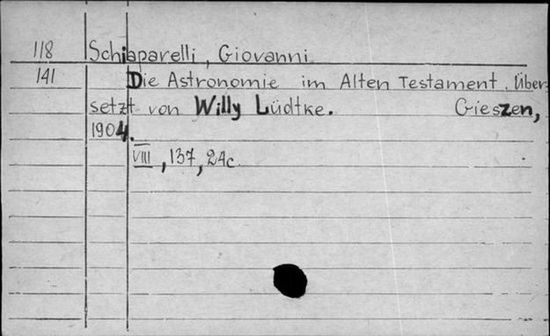 118 Schiaparelli, Giovanni
141 Die Astronomie im Alten Testament. Über-
setzt von Willy Lüdtke. Gieszen,
1904.
VIII, 137, 24c